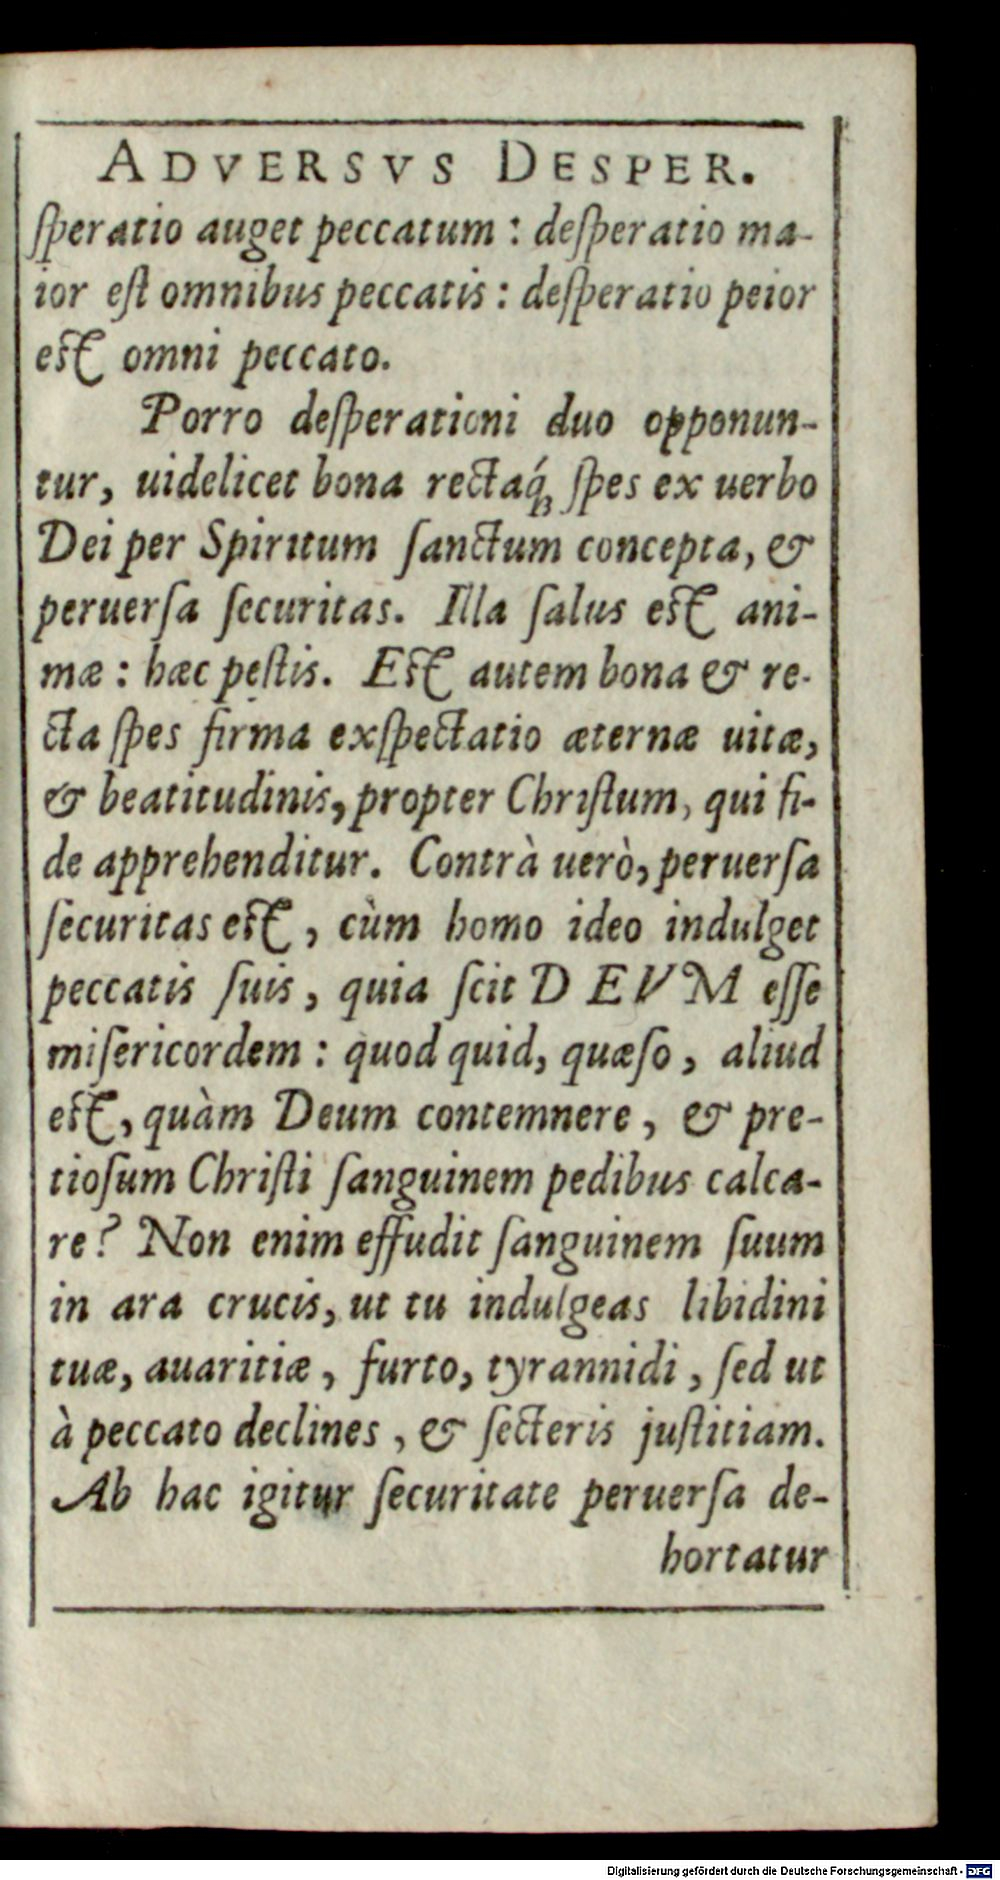 ADVERSVS DESPER.
ſperatio auget peccatum : deſperatio ma-
ior eſt omnibus peccatis : deſperatio peior
eſt omni peccato.
Porro deſperationi duo opponun-
tur, uidelicet bona rectaq́; ſpes ex uerbo
Dei per Spiritum ſanctum concepta, &
peruerſa ſecuritas. Illa ſalus eſt ani-
mæ : hæc peſtis. Eſt autem bona & re-
cta ſpes firma exſpectatio æternæ uitæ,
& beatitudinis, propter Chriſtum, qui fi-
de apprehenditur. Contrà uerò, peruerſa
ſecuritas eſt, cùm homo ideo indulget
peccatis ſuis, quia ſcit DEVM eſſe
miſericordem : quod quid, quæſo, aliud
eſt, quàm Deum contemnere, & pre-
tioſum Chriſti ſanguinem pedibus calca-
re? Non enim effudit ſanguinem ſuum
in ara crucis, ut tu indulgeas libidini
tuæ, auaritiæ, furto, tyrannidi, ſed ut
à peccato declines, & ſecteris juſtitiam.
Ab hac igitur ſecuritate peruerſa de-
hortatur
Digitalisierung gefördert durch die Deutsche Forschungsgemeinschaft - DFG